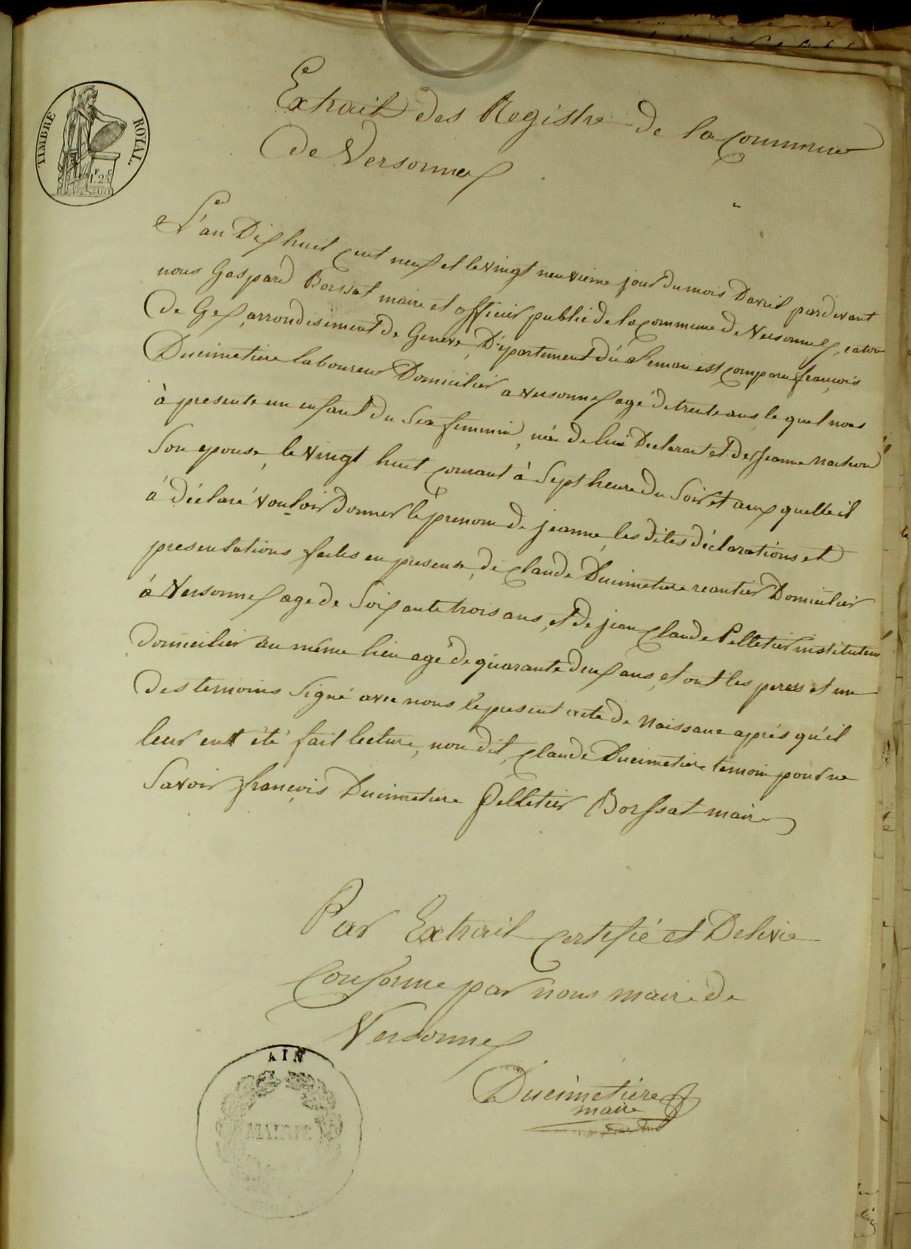 TIMBRE ROYAL.
Extrait des Registre de la Commune
de Versonnex
L'an Dix huit cent neuf et le vingt neuvième jour du mois Davril pardevant
nous Gaspard Borssat maire et officier public de la Commune de Versonnex, canton
De Gex, arrondissement de Genève, Département du Léman est comparu françois
Ducimetière laboureur Domicilier a Versonnex agé de trente ans, le quel nous
à presenté un enfant du Sexe feminin, née de lui Déclarant et de Jeanne
Son epouse, le vingt huit courant à Sept heure du Soir et aux quelle il
à déclaré vouloir donner le prenom de jeanne, les dites déclarations et
presentations faites en presense de Claude Ducimetière Domicilier
à Versonnex age de Soixante trois ans, et de jean Claude Pelletier instituteur
domicilier au même lieu agé de quarante deux ans, et ont les peres et un
des temoins Signé avec nous le présent acte de Naissance après qu'il
leur eut été fait lecture, non dit, Claude Ducimetière temoin pour ne
Savoir françois Ducimetière Pelletier Borssat maire
Par Extrait certifié et Delivré
Conforme par nous maire de
Versonnex
Ducimetière
maire
AIN
MAIRIE